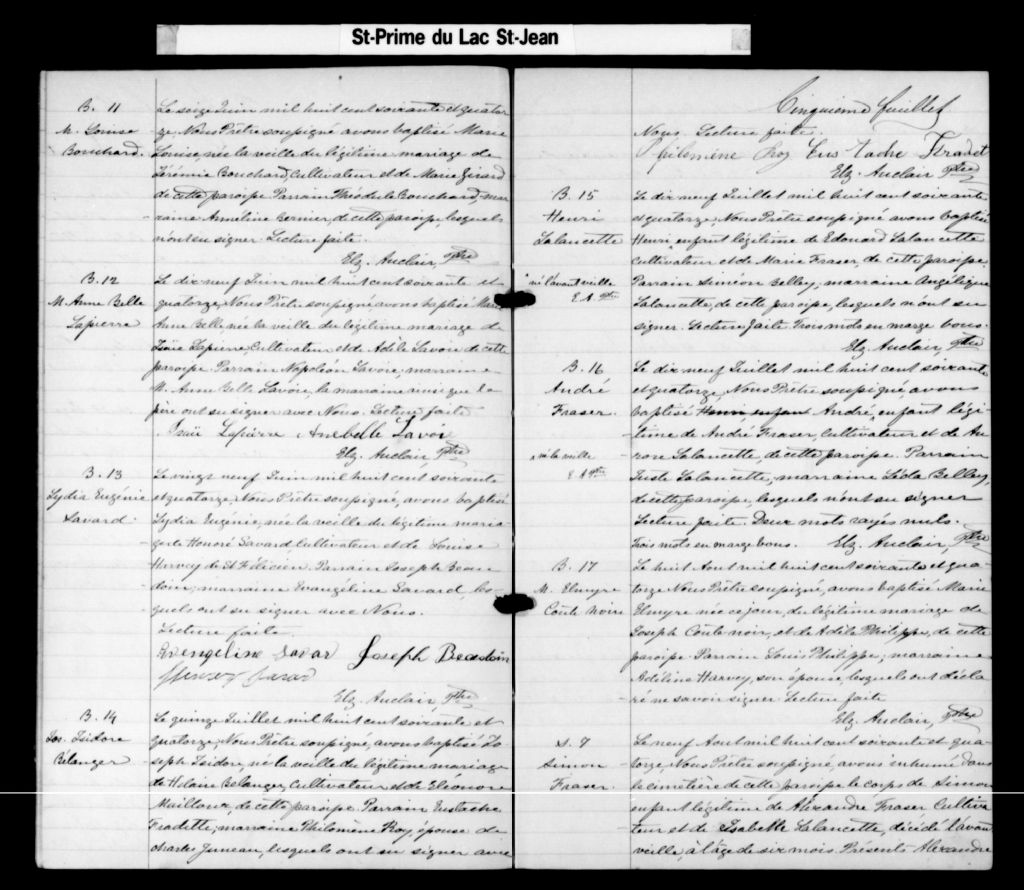 St-Prime du Lac St-Jean
B. 11
M. Louise
Bouchard.
Le seize Juin mil huit cent soixante et quator-
ze, Nous Prêtre soussigné avons baptisé Marie
Louise, née la veille du légitime mariage de
Jérémie Bouchard, Cultivateur et de Marie Girard
de cette paroisse. Parrain Théodule Bouchard, mar-
raine Anneline Bernier, de cette paroisse, lesquels
n'ont su signer. Lecture faite.
Elz. Auclair, Ptre
B. 12
M. Anne Belle
Lapierre
Le dix neuf Juin mil huit cent soixante et
quatorze, Nous Prêtre soussigné, avons baptisé Marie
Anne Belle, née la veille du légitime mariage de
Isaïe Lapierre, Cultivateur et de Adèle Savoie de cette
paroisse. Parrain Napoléon Savoie, marraine
M. Anne Belle Savoie, la marraine ainsi que le
père ont su signer avec Nous. Lecture faite
Isaïi Lapierre Anebelle Savoi
Elz. Auclair, Ptre
B. 13
Lydia Eugénie
Savard.
Le vingt neuf Juin mil huit cent soixante
et quatorze, Nous Prêtre soussigné, avons baptisé
Lydia Eugénie, née la veille du légitime maria-
ge de Honoré Savard, Cultivateur et de Louise
Harvey de St Félicien. Parrain Joseph Beau
doin, marraine Evangéline Savard, les-
quels ont su signer avec Nous.
Lecture faite.
Evengeline Savar Joseph Beadoin
Savar
Elz. Auclair, Ptre
B. 14
Jos. Isidore
Bélanger
Le quinze Juillet mil huit cent soixante et
quatorze, Nous Prêtre soussigné, avons baptisé Jo-
seph Isidore, né la veille du légitime mariage
de Hilaire Bélanger, Cultivateur et de Eléonore
Mailloux, de cette paroisse. Parrain Eustache
Fradette, marraine Philomène Roy, épouse de
Charles Juneau, lesquels ont su signer avec
Cinquième feuillet
Nous. Lecture faite.
Philemène Roy Eus tache Feradet
Elz. Auclair Ptre
B. 15
Henri
Lalancette
"né l'avant veille
E. A. Ptre
Le dix neuf Juillet mil huit cent soixante
et quatorze, Nous Prêtre soussigné avons baptisé
Henri, enfant légitime de Edouard Lalancette
Cultivateur et de Marie Fraser, de cette paroisse.
Parrain Siméon Belley, marraine Angélique
Lalancette, de cette paroisse, lesquels n'ont su
signer. Lecture faite. Trois mots en marge bons.
Elz. Auclair, Ptre
B. 16
André
Fraser.
né la veille
E. A Ptre
Le dix neuf Juillet mil huit cent soixante
et quatorze, Nous Prêtre soussigné, avons
baptisé Henri enfant André, enfant légi-
time de André Fraser, Cultivateur et de Au-
rore Lalancette, de cette paroisse. Parrain
Juste Lalancette, marraine Léda Belley,
de cette paroisse, lesquels n'ont su signer
Lecture faite. Deux mots rayés nuls.
Trois mots en marge bons. Elz. Auclair, Ptre
B. 17
M. Elmyre
Coute Noire
Le huit Aout mil huit cent soixante et qua-
torze Nous Prêtre soussigné, avons baptisé Marie
Elmyre née ce jour, du légitime mariage de
Joseph Coute noir, et de Adèle Philippe, de cette
paroisse Parrain Louis Philippe, marraine
Adéline Harvey, son épouse, lesquels ont décla-
ré ne savoir signer. Lecture faite
Elz. Auclair, Ptre
S. 7
Simon
Fraser.
Le neuf Aout mil huit cent soixante et qua-
torze, Nous Prêtre soussigné, avons inhumé dans
le cimetière de cette paroisse, le corps de Simon
enfant légitime de Alexandre Fraser Cultiva
teur et de Isabelle Lalancette, décédé l'avant
veille, à l'âge de six mois. Présents Alexandre